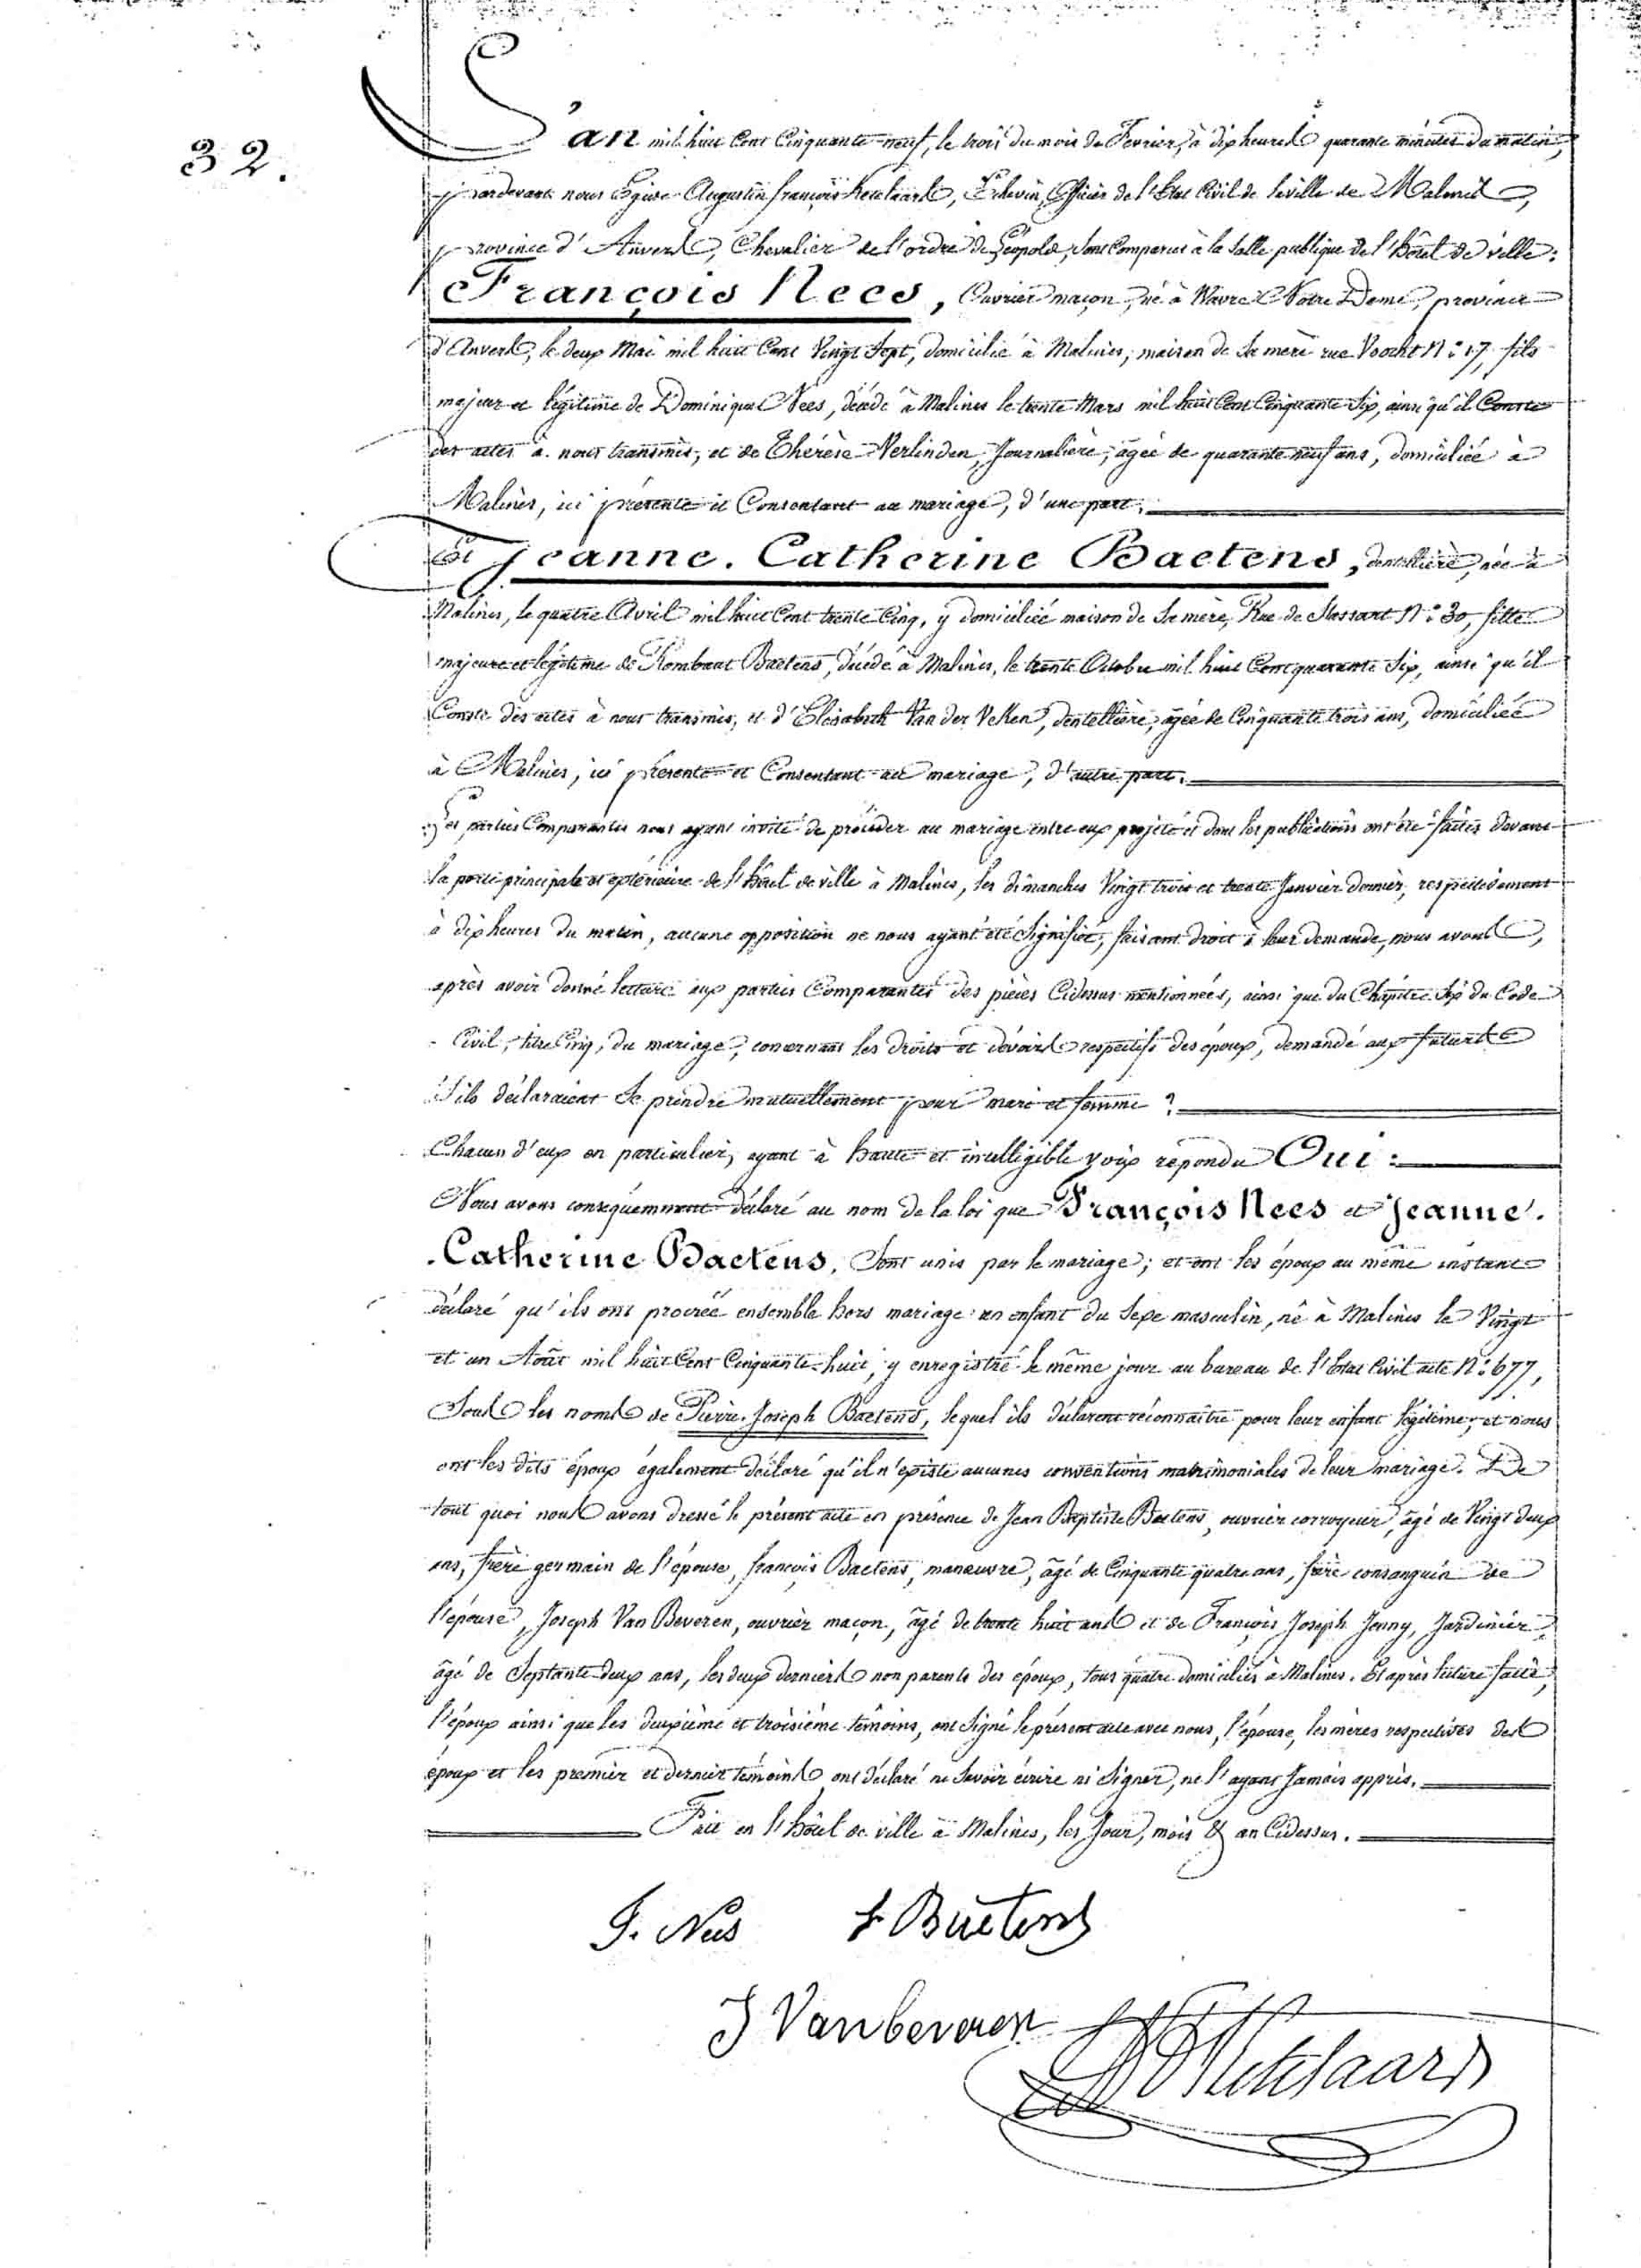 32.
L'an mil huit Cent Cinquante-neuf, le trois du mois de Fevrier, à dix heures quarante minutes du matin,
pardevant nous Egide Augustin françois Ketelaars, Echevin, Officier de l'Etat Civil de la ville de Malines,
province d'Anvers, Chevalier de l'ordre de Léopold, sont Comparus à la Salle publique de l'hôtel de ville:
François Nees, Ouvrier maçon, né à Wavre Notre Dame, province
d'Anvers, le deux Mai mil huit Cent Vingt Sept, domicilié à Malines, maison de Sa mère rue Voocht N.° 17, fils
majeur et légitime de Dominique Nees, décédé à Malines le trente Mars mil huit Cent Cinquante Six, ainsi qu'il Conste
des actes à nous transmis, et de Thérèse Verlinden, Journalière, âgée de quarante neuf ans, domiciliée à
Malines, ici présente et Consentant au mariage, d'une part;
Et Jeanne. Catherine Baetens, dentellière, née à
Malines, le quatre Avril mil huit Cent trente Cinq, y domiciliée maison de Sa mère, Rue de Stassart N.° 30, fille
majeure et légitime de Rombaut Baetens, décédé à Malines, le trente Octobre mil huit Cent quarante Six, ainsi qu'il
Conste des actes à nous transmis, et d'Elisabeth Van der Veken, dentellière, âgée de Cinquante trois ans, domiciliée
à Malines, ici présente et Consentant au mariage, d'autre part.
Les parties Comparantes nous ayant invité de procéder au mariage entre eux projeté et dont les publications ont été faites devant
la porte principale et extérieure de l'hôtel de ville à Malines, les dimanches Vingt trois et trente Janvier dernier, respectivement
à dix heures du matin, aucune opposition ne nous ayant été Signifiée, faisant droit à leur demande, nous avons,
après avoir donné lecture aux parties Comparantes des pièces Cidessus mentionnées, ainsi que du Chapitre Six du Code
Civil, titre Cinq, du mariage, concernant les droits et devoirs respectifs des époux, demandé aux futurs
S'ils déclaraient Se prendre mutuellement pour mari et femme ?
Chacun d'eux en particulier, ayant à haute et intelligible voix répondu Oui:
Nous avons conséquemment déclaré au nom de la loi que François Nees et Jeanne.
Catherine Baetens, Sont unis par le mariage; et ont les époux au même instant
déclaré qu'ils ont procréé ensemble hors mariage un enfant du Sexe masculin, né à Malines le Vingt
et un Août mil huit Cent Cinquante-huit, y enregistré le même jour au bureau de l'Etat Civil acte N.° 677,
Sous les noms de Pierre. Joseph Baetens, lequel ils déclarent réconnaître pour leur enfant légitime; et nous
ont les dits époux également déclaré qu'il n'existe aucunes conventions matrimoniales de leur mariage. De
tout quoi nous avons dressé le présent acte en présence de Jean Baptiste Baetens, ouvrier corroyeur, âgé de Vingt deux
ans, frère germain de l'épouse, françois Baetens, manœuvre, âgé de Cinquante quatre ans, frère consanguin de
l'épouse, Joseph Van Beveren, ouvrier maçon, âgé de trente huit ans et de François Joseph Jenny, Jardinier,
âgé de Septante-deux ans, les deux derniers non parents des époux, tous quatre domiciliés à Malines. Et après lecture faite,
l'époux ainsi que les deuxième et troisième témoins, ont signé le présent acte avec nous, l'épouse, les mères respectives des
époux et les premier et dernier témoins ont déclaré ne Savoir écrire ni Signer, ne l'ayant Jamais appris.
Fait en l'hôtel de ville à Malines, les Jour, mois & an Cidessus.
F. Nees f Baetens
J Vanbeveren
Ketelaars